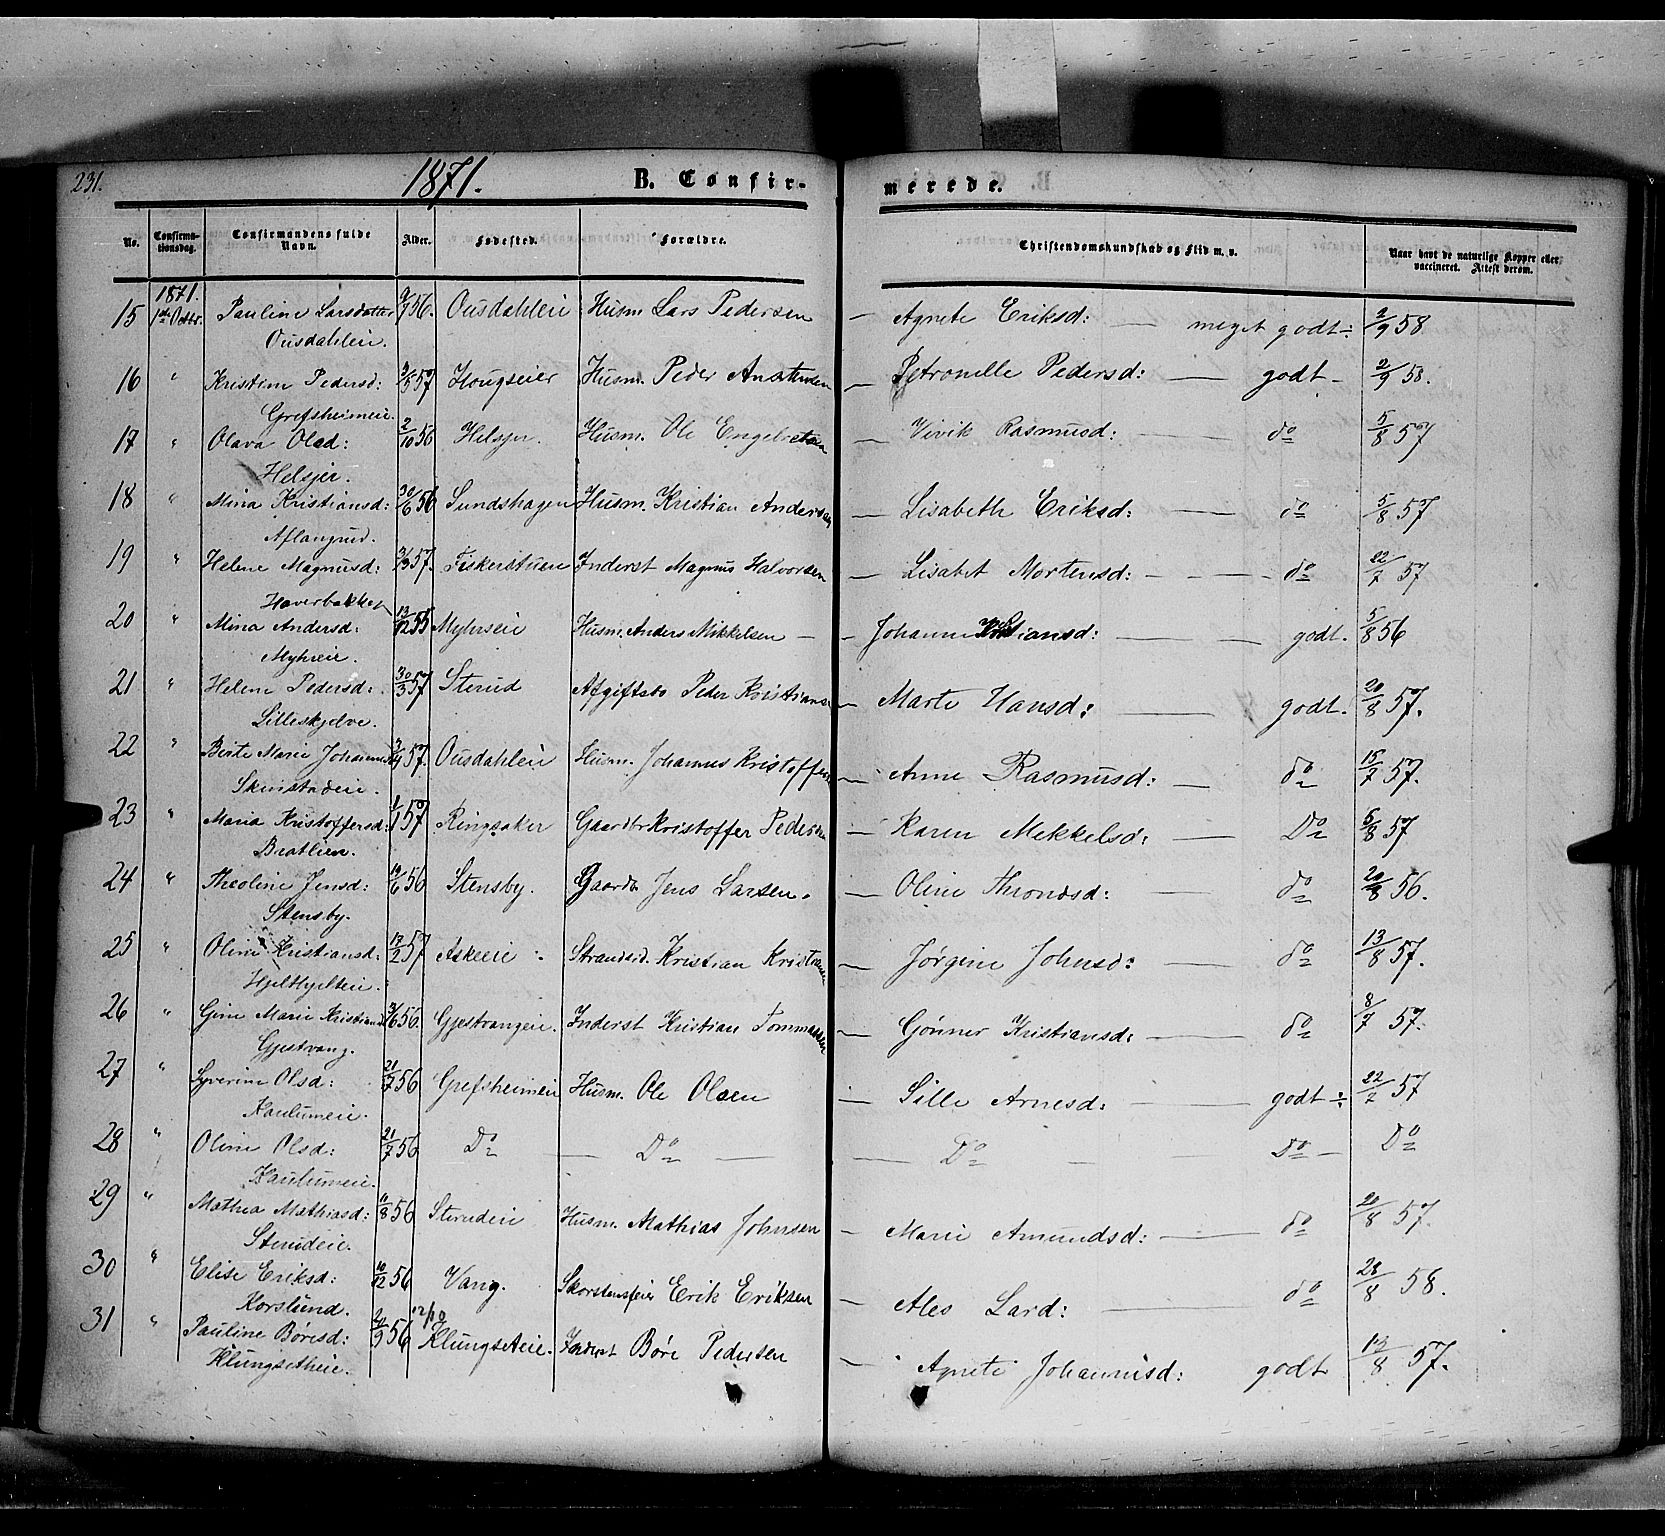 231.
1871.
B. Confir-
merede.
No.
Confirma-
tionsdag.
Confirmandens fulde
Navn.
Alder.
Fødested.
Forældre.
Christendomskundskab og Flid m. v.
Naar havt de naturlige Kopper eller
vaccineret. Attest derom.
1871.
15 1ste Octbr. Pauline Larsdatter 9/7 56. Ousdahleie Husm Lars Pedersen — Agnete Eriksd: — meget godt÷ 2/9 58
Ousdahleie.
16 " Kristine Pedersd: 3/5 57 Hougseier Husm. Peder Anstensen — Petronille Pedersd: — godt — 2/9 58.
Grefsheimeie.
17 " Olava Olsd: 2/10 56 Helsjer. Husm. Ole Engebretsen — Vivik Rasmusd: — do 5/8 57
Helsjer.
18 " Mina Kristiansd: 30/6 56 Sundshagen Husm. Kristian Andersen — Lisabeth Eriksd: — do 5/8 57
Aflangrud.
19 " Helene Magnusd: 57. Fiskerstuen Inderst Magnus Halvorsen — Lisabet Mortensd: - - - do 22/7 57
Haverbakken
20 " Mina Andersd: 13/12 55 Myhreie Husm. Anders Mikkelsen — - Johanne Kristiansd: — godt. 5/8 56
Myhreie.
21 " Helene Pedersd: 30/3 57 Sterud Afgiftsbo Peder Kristiansen — Marte Hansd: — godt. 20/8 57.
Lilleskjelve.
22 " Berte Marie Johannesd 57. Ousdahleie Husm. Johannes Kristoffersen — Anne Rasmusd: — do 15/7 57.
Skinstadeie.
23 " Maria Kristoffersd: 1/1 57 Ringsaker Gaardbr Kristoffer Pedersen — Karen Mekkelsd: — Do 5/8 57
Bratlien.
24 " Theoline Jensd: 10/6 56 Stensby. Gaardb Jens Larsen. — Oline Throndsd: — do 20/8 56.
Stensby.
25 " Oline Kristiansd: 12/2 57 Askeeie Strandsid. Kristian Kristiansen — Jørgine Johnsd: — do 13/8 57.
Hjelthjelteie.
26 " Gine Marie Kristiansd 56. Gjestvangeie. Inderst Kristian Tommassen — Gönner Kristiansd: — do 8/7 57.
Gjestvang.
27 " Syverine Olsd: 21/7 56 Grefsheimeie Husm. Ole Olsen — Sille Arnesd: — godt ÷ 22/2 57
Kaulumeie.
28 " Oline Olsd: 21/7 56 Do — Do — — Do — Do — Do
Kaulumeie.
29 " Mathea Mathiasd: 11/8 56 Sterudeie Husm. Mathias Johnsen — Marie Amundsd: — do 20/8 57.
Sterudeie.
30 " Elise Eriksd: 10/12 56 Vang. Skorstensfeier Erik Eriksen — Ales Larsd: — do 28/8 58.
Korslund.
31 " Pauline Børesd: 56 Klungseteie. Inderst Böre Pedersen — Agnete Johannisd: godt 13/8 57.
Klungsetheie.